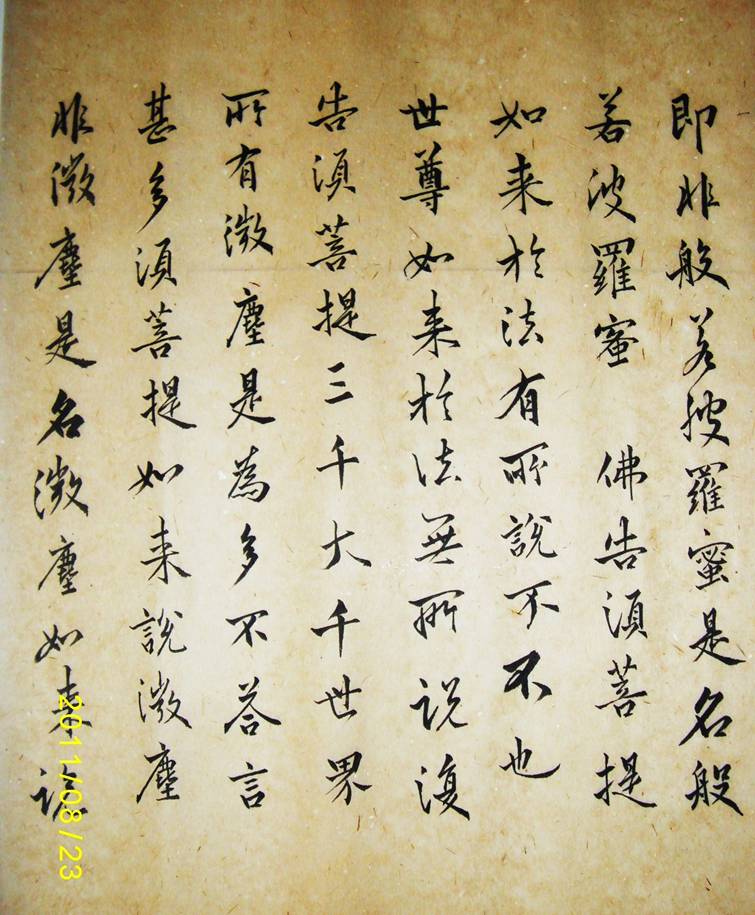 即非般若波羅蜜是名般
若波羅蜜 佛告湏菩提
如来於法有所說不不也
世尊如来於法無所説復
告湏菩提三千大千世界
所有微塵是為多不荅言
甚多湏菩提如来說微塵
非微塵是名微塵如来說
2011/08/23